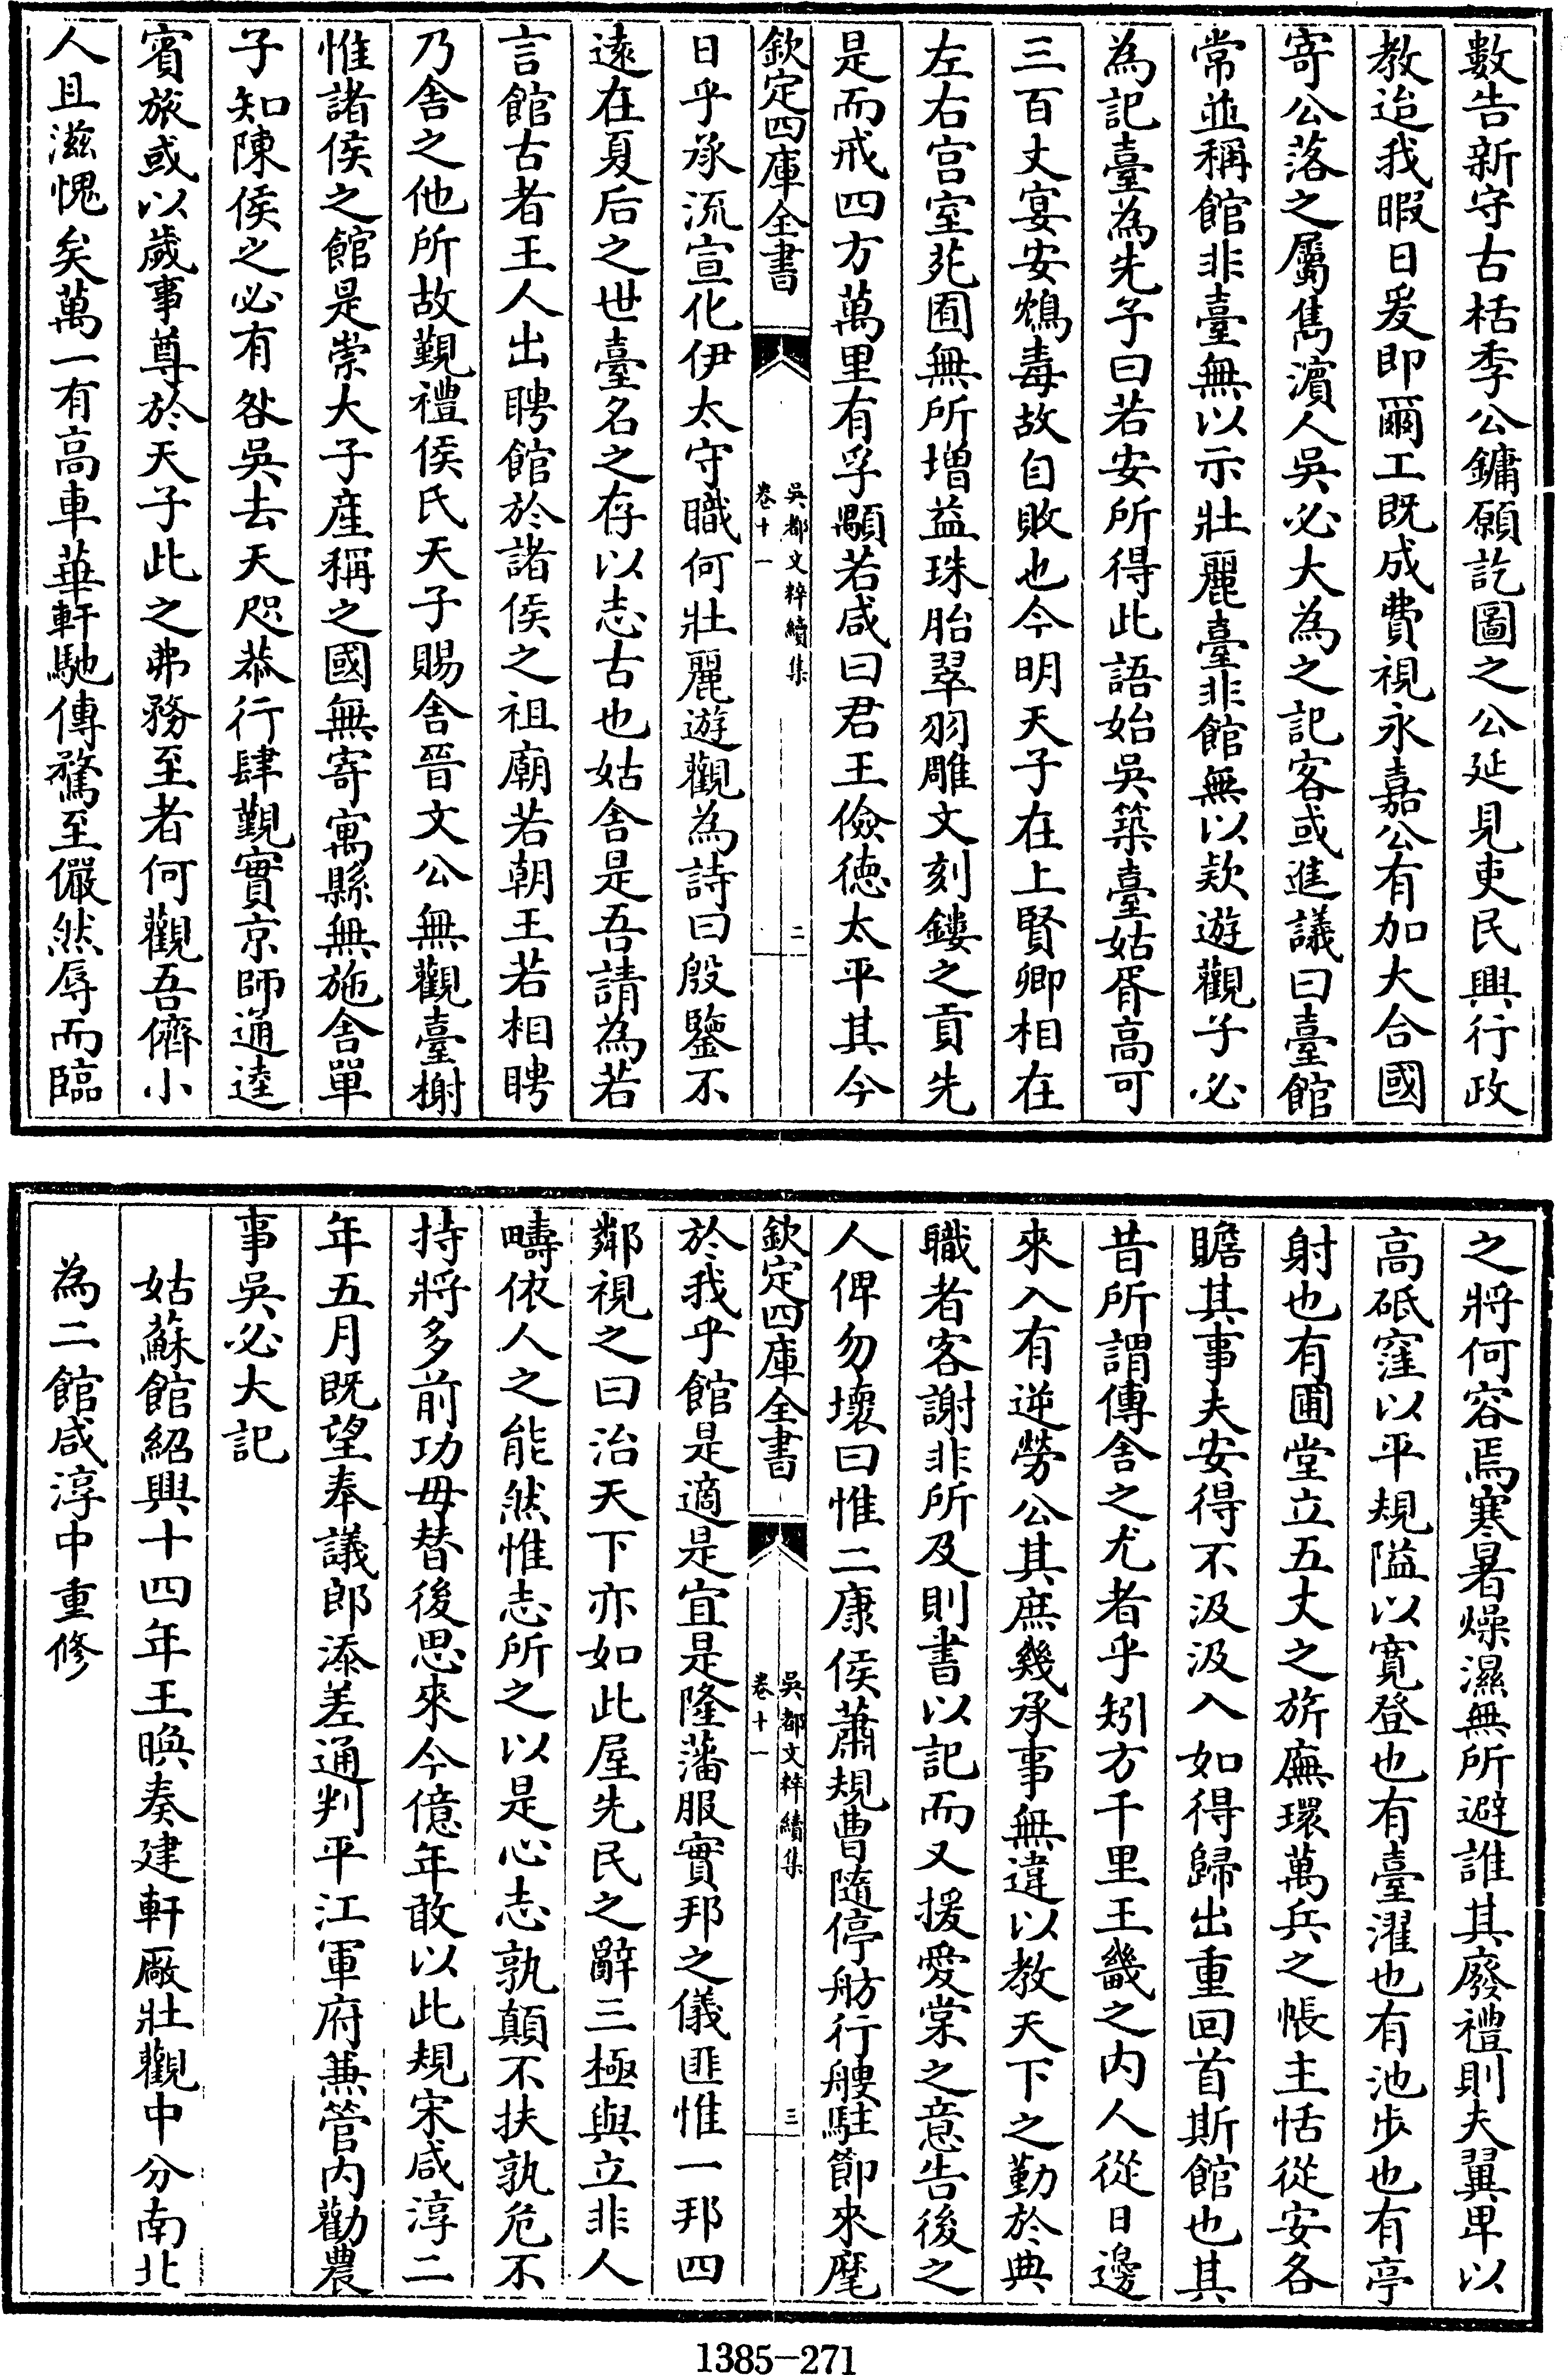 數告新守古栝季公鏞願訖圖之公延見吏民興行政
教迨我暇日爰即爾工既成費視永嘉公有加大合國
寄公落之屬雋濵人吳必大為之記客或進議曰臺館
常並稱館非臺無以示壯麗臺非館無以欵遊觀子必
為記臺為先予曰若安所得此語始吳築臺姑胥高可
三百丈宴安鴆毒故自敗也今明天子在上賢卿相在
左右宫室苑囿無所增益珠胎翠羽雕文刻鏤之貢先
是而戒四方萬里有孚顒若咸曰君王儉徳太平其今
欽定四庫全書
吳都文粹續集
卷十一
二
日乎承流宣化伊太守職何壯麗遊觀為詩曰殷鑒不
逺在夏后之世臺名之存以志古也姑舍是吾請為若
言館古者王人出聘館於諸侯之祖廟若朝王若相聘
乃舍之他所故覲禮侯氏天子賜舍晉文公無觀臺榭
惟諸侯之館是崇大子產稱之國無寄寓縣無施舍單
子知陳侯之必有咎吳去天咫恭行肆覲實京師通逵
賓旅或以嵗事尊於天子此之弗務至者何觀吾儕小
人且滋愧矣萬一有高車華軒馳傳騖至儼然辱而臨
之將何容焉寒暑燥濕無所避誰其廢禮則夫翼卑以
高砥窪以平規隘以寛登也有臺濯也有池歩也有亭
射也有圃堂立五丈之旂廡環萬兵之帳主恬從安各
贍其事夫安得不汲汲入如得歸出重回首斯館也其
昔所謂傳舍之尤者乎矧方千里王畿之内人從日邊
來入有逆勞公其庶幾承事無違以教天下之勤於典
職者客謝非所及則書以記而又援愛棠之意告後之
人俾勿壞曰惟二康侯蕭規曹隨停舫行艘駐節來麾
欽定四庫全書
吳都文粹續集
卷十一
三
於我乎館是適是宜是隆藩服實邦之儀匪惟一邦四
鄰視之曰治天下亦如此屋先民之辭三極與立非人
疇依人之能然惟志所之以是心志孰顛不扶孰危不
持將多前功毋替後思來今億年敢以此規宋咸淳二
年五月既望奉議郎添差通判平江軍府兼管内勸農
事吳必大記
姑蘇館紹興十四年王㬇奏建軒厰壯觀中分南北
為二館咸淳中重修
1385-271